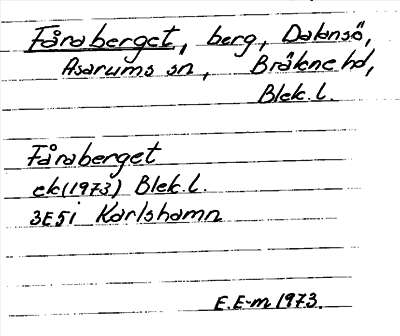 Fåraberget, berg, Dalansö,
Asarums sn, Bräkne hd,
Blek. l.
Fåraberget
ek(1973) Blek. l.
3E5i Karlshamn
E. E-m 1973.